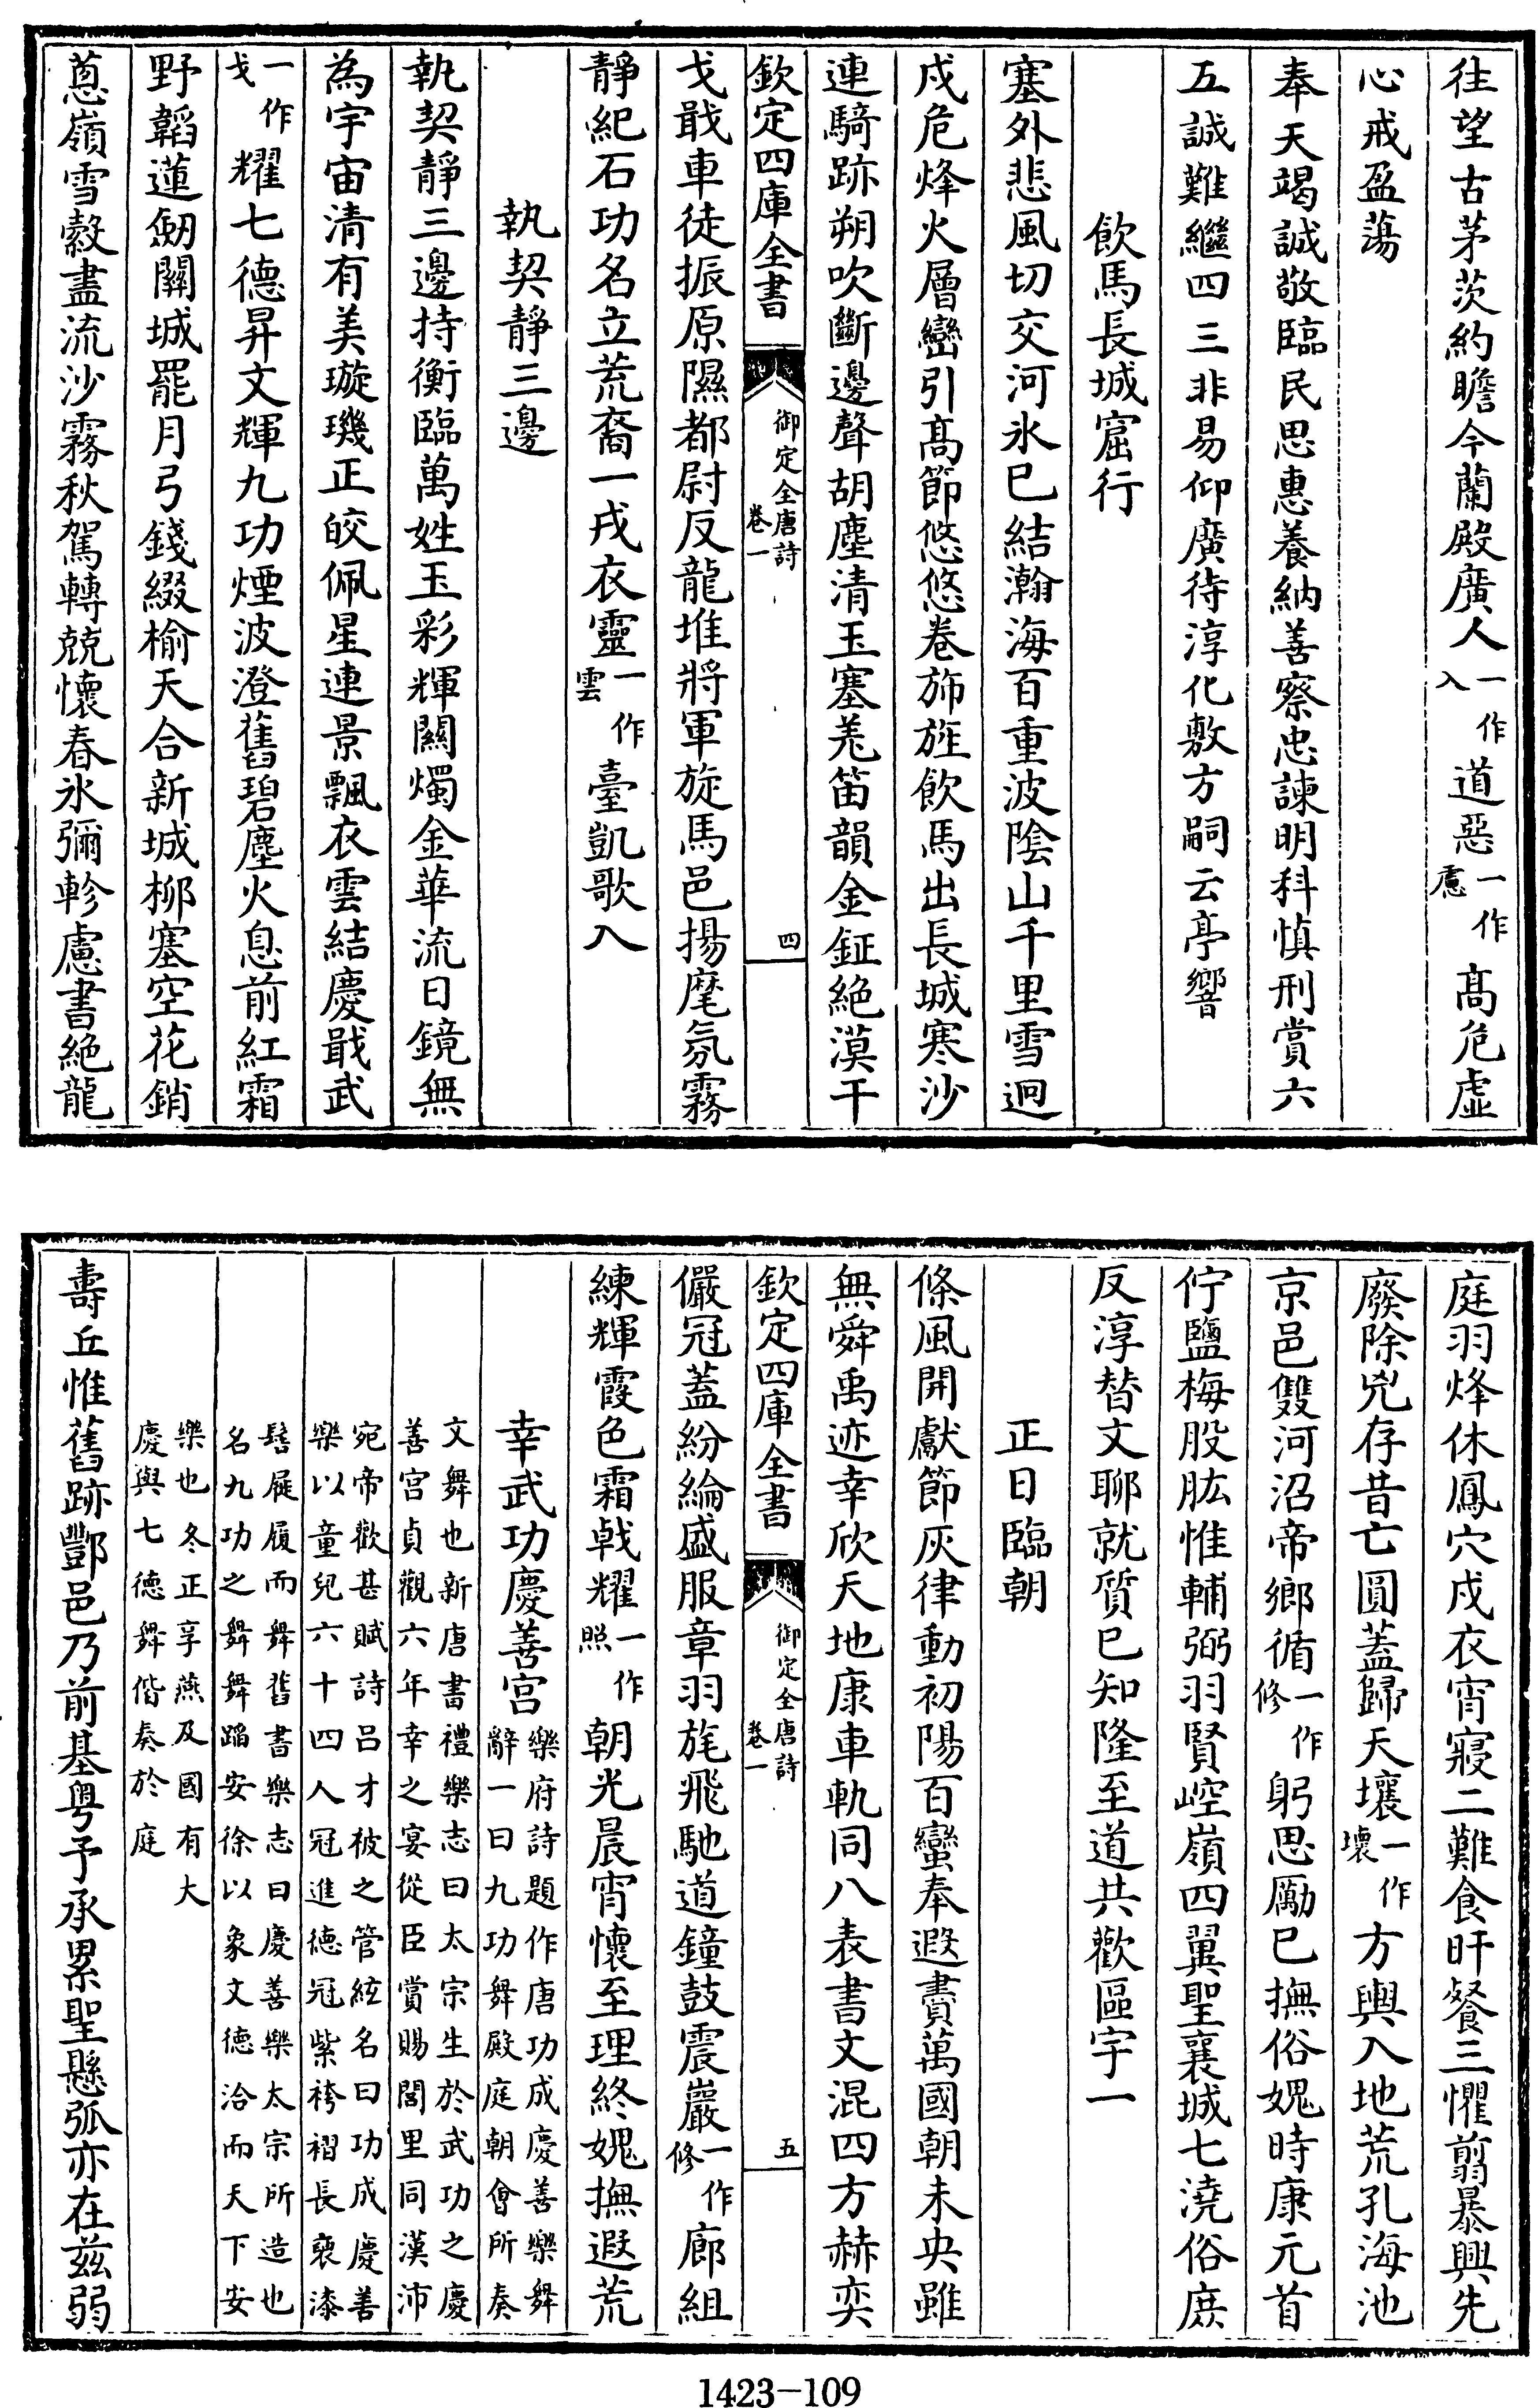 往望古茅茨約瞻今蘭殿廣人一作入道惡一作慮髙危虛
心戒盈蕩
奉天竭誠敬臨民思惠養納善察忠諫明科慎刑賞六
五誠難繼四三非易仰廣待淳化敷方嗣云亭響
飲馬長城窟行
塞外悲風切交河氷已結瀚海百重波陰山千里雪迥
戍危烽火層巒引髙節悠悠卷斾旌飲馬出長城寒沙
連騎跡朔吹斷邊聲胡塵清玉塞羌笛韻金鉦絶漠干
欽定四庫全書
御定全唐詩
卷一
四
戈戢車徒振原隰都尉反龍堆將軍旋馬邑揚麾氛霧
靜紀石功名立荒裔一戎衣靈一作雲臺凱歌入
執契靜三邊
執契靜三邊持衡臨萬姓玉彩輝闗燭金華流日鏡無
為宇宙清有美璇璣正皎佩星連景飄衣雲結慶戢武
一作戈耀七德昇文輝九功煙波澄舊碧塵火息前紅霜
野韜蓮劒闗城罷月弓錢綴榆天合新城栁塞空花銷
蔥嶺雪縠盡流沙霧秋駕轉兢懷春氷彌軫慮書絶龍
庭羽烽休鳳穴戍衣宵寢二難食旰餐三懼翦暴興先
廢除兇存昔亡圓蓋歸天壤一作壞方輿入地荒孔海池
京邑雙河沼帝鄉循一作修躬思勵已撫俗媿時康元首
佇鹽梅股肱惟輔弼羽賢崆嶺四翼聖襄城七澆俗庶
反淳替文聊就質已知隆至道共歡區宇一
正日臨朝
條風開獻節灰律動初陽百蠻奉遐賮萬國朝未央雖
無舜禹迹幸欣天地康車軌同八表書文混四方赫奕
欽定四庫全書
御定全唐詩
卷一
五
儼冠蓋紛綸盛服章羽旄飛馳道鐘鼓震巖一作修廊組
練輝霞色霜戟耀一作照朝光晨宵懷至理終媿撫遐荒
幸武功慶善宫樂府詩題作唐功成慶善樂舞
辭一曰九功舞殿庭朝會所奏
文舞也新唐書禮樂志曰太宗生於武功之慶
善宫貞觀六年幸之宴從臣賞賜閭里同漢沛
宛帝歡甚賦詩吕才被之管絃名曰功成慶善
樂以童兒六十四人冠進德冠紫袴褶長袖漆
髻屣履而舞舊書樂志曰慶善樂太宗所造也
名九功之舞舞蹈安徐以象文德洽而天下安
樂也冬正享燕及國有大
慶與七德舞偕奏於庭
壽丘惟舊跡酆邑乃前基粤予承累聖懸弧亦在兹弱
1423-109